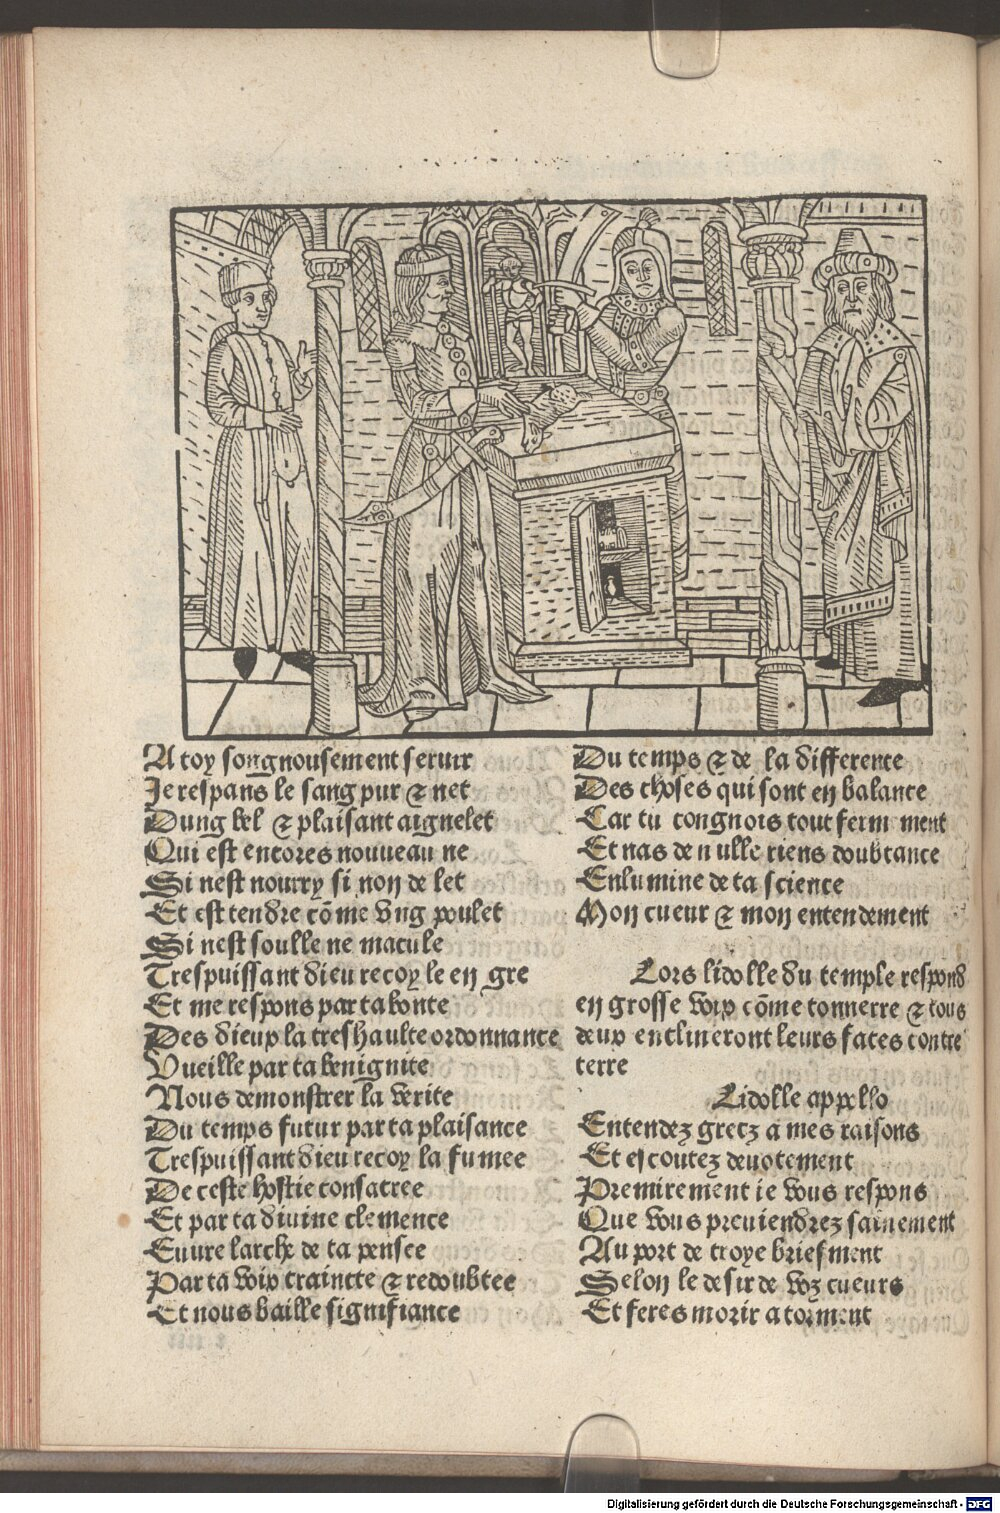 A toy songnousement seruir
Je respans le sang pur & net
Dung bel & plaisant aignelet
Qui est encores nouueau ne
Si nest nourry si non de let
Et est tendre cõme vng poulet
Si nest soulle ne macule
Trespuissant dieu recoy le en gre
Et me respons par ta bonte
Des dieux la treshaulte ordonnance
Vueille par ta benignite
Nous demonstrer la verite
Du temps futur par ta plaisance
Trespuissant dieu recoy la fumee
De ceste hostie consacree
Et par ta diuine clemence
Euure larche de ta pensee
Par ta voix craincte & redoubtee
Et nous baille signifiance
Du temps & de la difference
Des choses qui sont en balance
Car tu congnois tout ferm ment
Et nas de n ulle riens doubtance
Enlumine de ta science
Mon cueur & mon entendement
Lors lidolle du temple respond
en grosse voix cõme tonnerre & tous
deux enclineront leurs faces contre
terre
Lidolle appollo
Entendez grecz a mes raisons
Et escoutez deuotement
Premirement ie vous respons
Que vous preuiendrez sainement
Au port de troye briefment
Selon le desir de voz cueurs
Et feres morir a torment
Digitalisierung gefördert durch die Deutsche Forschungsgemeinschaft - DFG